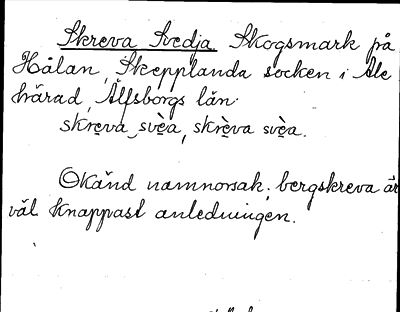 Skreva Svedja. Skogsmark på
Hålan, Skepplanda socken i Ale
härad, Älfsborgs län.
skreva svèa, skrèva svèa.
Okänd namnorsak; bergskreva är
väl knappast anledningen.